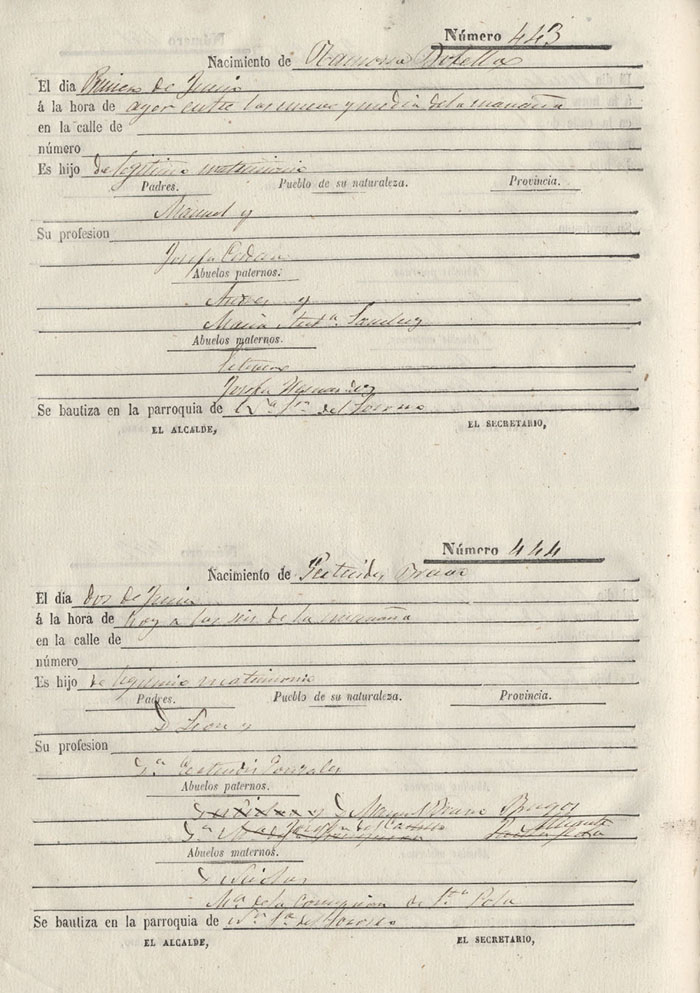 Número 443
Nacimiento de Ramona Botella
El dia Primero de Junio
á la hora de ayer entre las nueve y media de la mañana
en la calle de
número
Es hijo de legitimo matrimonio
Padres. Pueblo de su naturaleza. Provincia.
Manuel y
Su profesion
Josefa
Abuelos paternos.
Andres y
Maria Antª Sanchez
Abuelos maternos.
Josefa Hernandez
Se bautiza en la parroquia de Nª Sª del Socorro
EL ALCALDE, EL SECRETARIO,
Número 444
Nacimiento de Gertrudis Bravo
El día dos de Junio
á la hora de hoy a las seis de la mañana
en la calle de
número
Es hijo de legitimo matrimonio
Padres. Pueblo de su naturaleza. Provincia.
D Leon y
Su profesion
Dª Gertrudis Gonzalez
Abuelos paternos.
y D Manuel Bravo Burgos
Dª Mª Josefa Alicante
Abuelos maternos.
D
Mª de la Concepcion de Stª Pola
Se bautiza en la parroquia de Nª Sª del Socorro
EL ALCALDE, EL SECRETARIO,